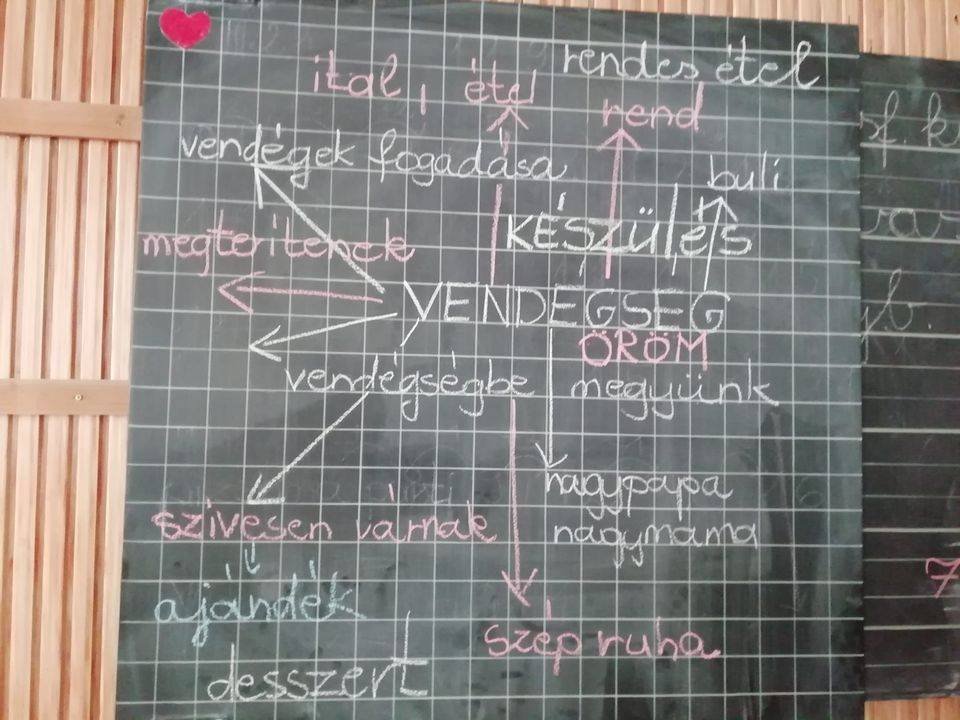 rendes étel
ital, étel
rend
vendégek fogadása
buli
KÉSZÜlés
megteritenek
VENDÉGSÉG
ÖRÖM
vendégségbe megyünk
nagypapa
szivesen várnak
nagymama
ajándék
szép ruha
desszert
7